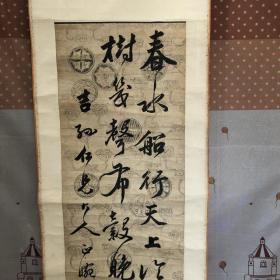 春水船行天上
樹幾聲布穀晚
吉孙仁兄大人正腕